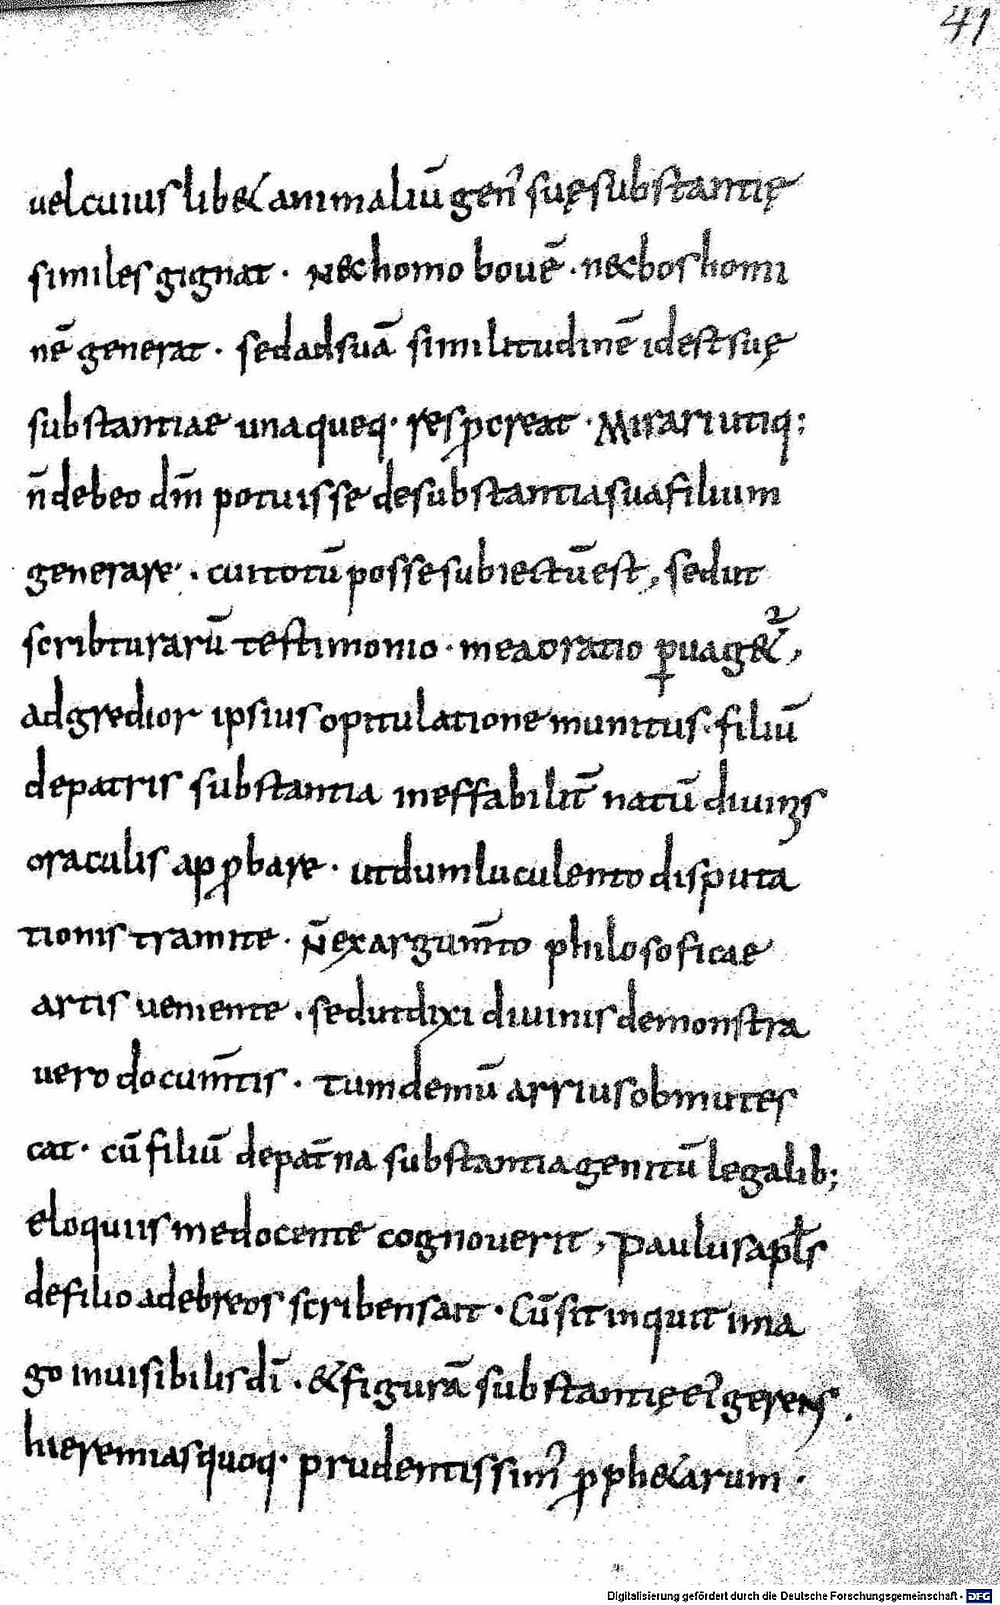 41
uel cuius lib& animaliū gen᾿ suę substantię
similes gignat · Nec homo bouē · nec bos homi
nē generat · sed ad suā similitudinē id est suę
substantiae una queq· res ꝓcreat · Mirari utiq;
n̄ debeo dm̄ potuisse de substantia sua filium
generare · cui totū posse subiectū est, sed ut
scribturarū testimonio · mea oratio ꝑuag&ᷣ,
adgredior ipsius opitulatione munitus · filiū
de patris substantia ineffabilit̄ natū diuinis
oraculis apꝓbare · ut dum luculento disputa
tionis tramite · N̄ ex argum̄to philosoficae
artis ueniente · sed ut dixi diuinis demonstra
uero docum̄tis · tum demū arrius obmutes
cat · cū filiū de pat̄na substantia genitū legalib;
eloquiis me docente cognouerit, Paulus apl̄s
de filio ad ebreos scribens ait · Cū sit inquit ima
go inuisibilis dī · & figurā substantię ei᾿ gerens.
hieremias quoq· prudentissim᾿ ꝓph&arum ·
Digitalisierung gefördert durch die Deutsche Forschungsgemeinschaft - DFG